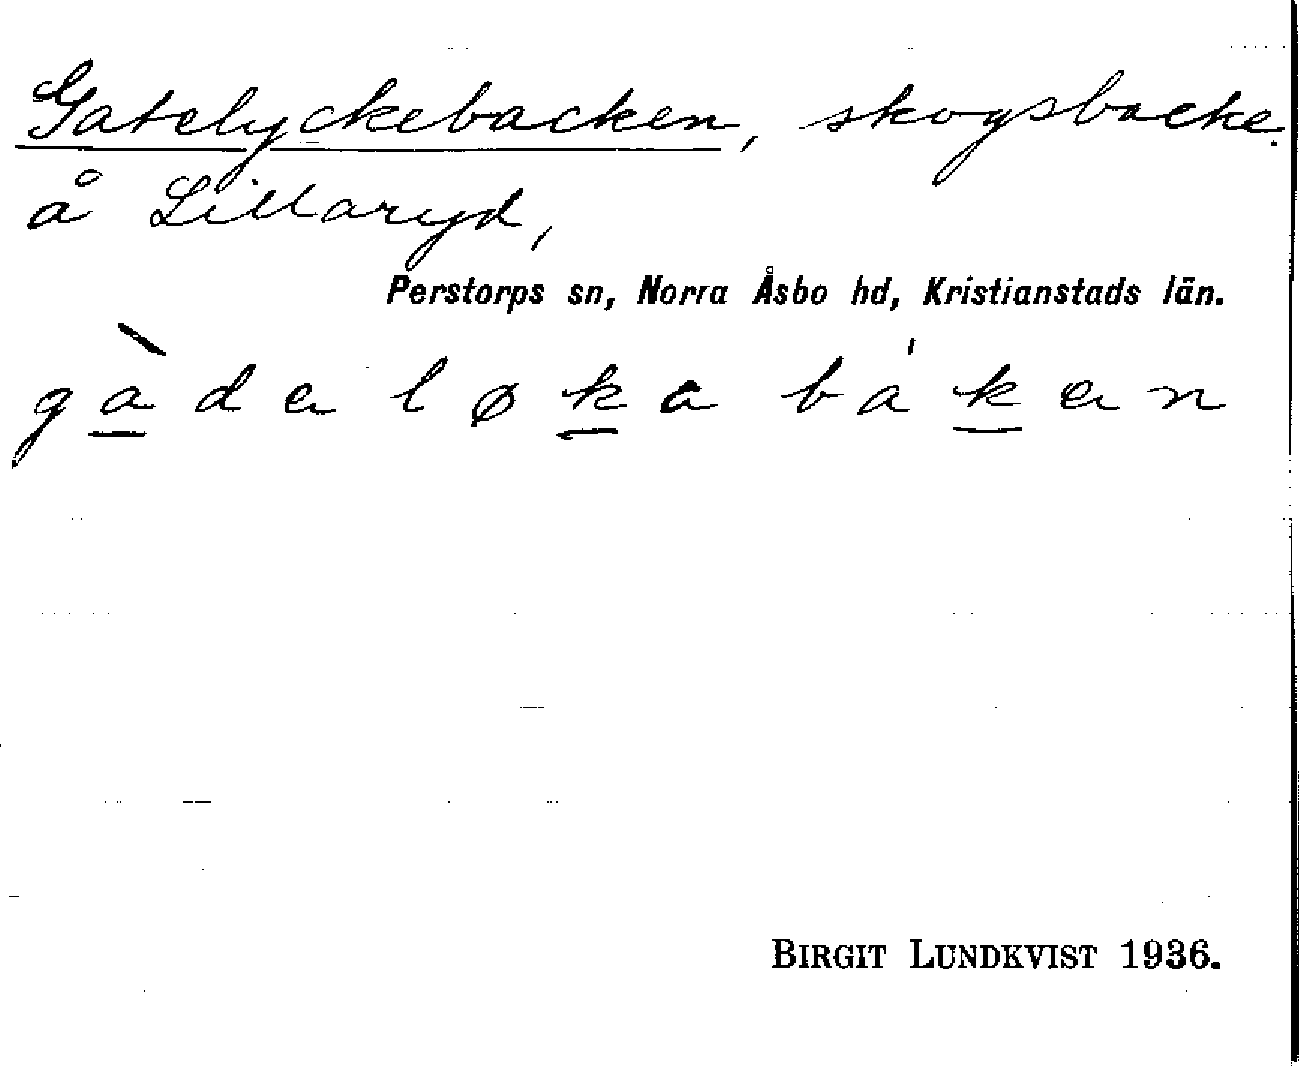 Gatelyckebacken, skogsbacke
å Lillaryd,
Perstorps sn, Norra Åsbo hd, Kristianstads län.
gàdaløka bákan
BIRGIT LUNDKVIST 1936.